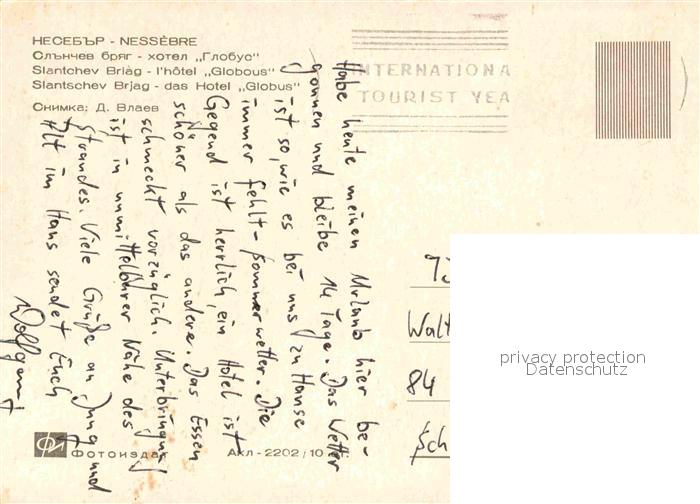 НЕСЕБЪР - NESSÈBRE
Слънчев бряг - хотел „Глобус“
Slantchev Briàg - l'hôtel „Globous“
Slantschev Brjag - das Hotel „Globus“
Снимка: Д. Влаев
INTERNATIONA
TOURIST YEA
Habe heute meinen Urlaub hier be-
gonnen und bleibe 14 Tage. Das Wetter
ist so, wie es bei uns zu Hause
immer fehlt - Sommerwetter. Die
Gegend ist herrlich, ein Hotel ist
schöner als das andere. Das Essen
schmeckt vorzüglich. Unterbringung
ist in unmittelbarer Nähe des
Strandes. Viele Grüße an Jung und
Alt im Haus sendet Euch
Wolfgang
Walt
84
Sch
privacy protection
Datenschutz
ФИ
Фотоиздат
Акл-2202/10